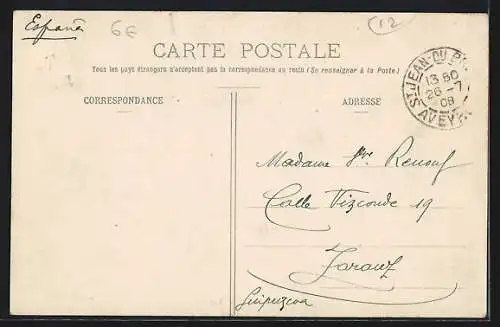 España
6E
12
CARTE POSTALE
Tous les pays étrangers n'acceptent pas la correspondance au recto (Se renseigner à la Poste)
CORRESPONDANCE
ADRESSE
ST JEAN-DU-
13 50
26 -7
08
AVEYR
Madame Vve Renouf
Calle Vizconde 19
Zarauz
Guipuzcoa